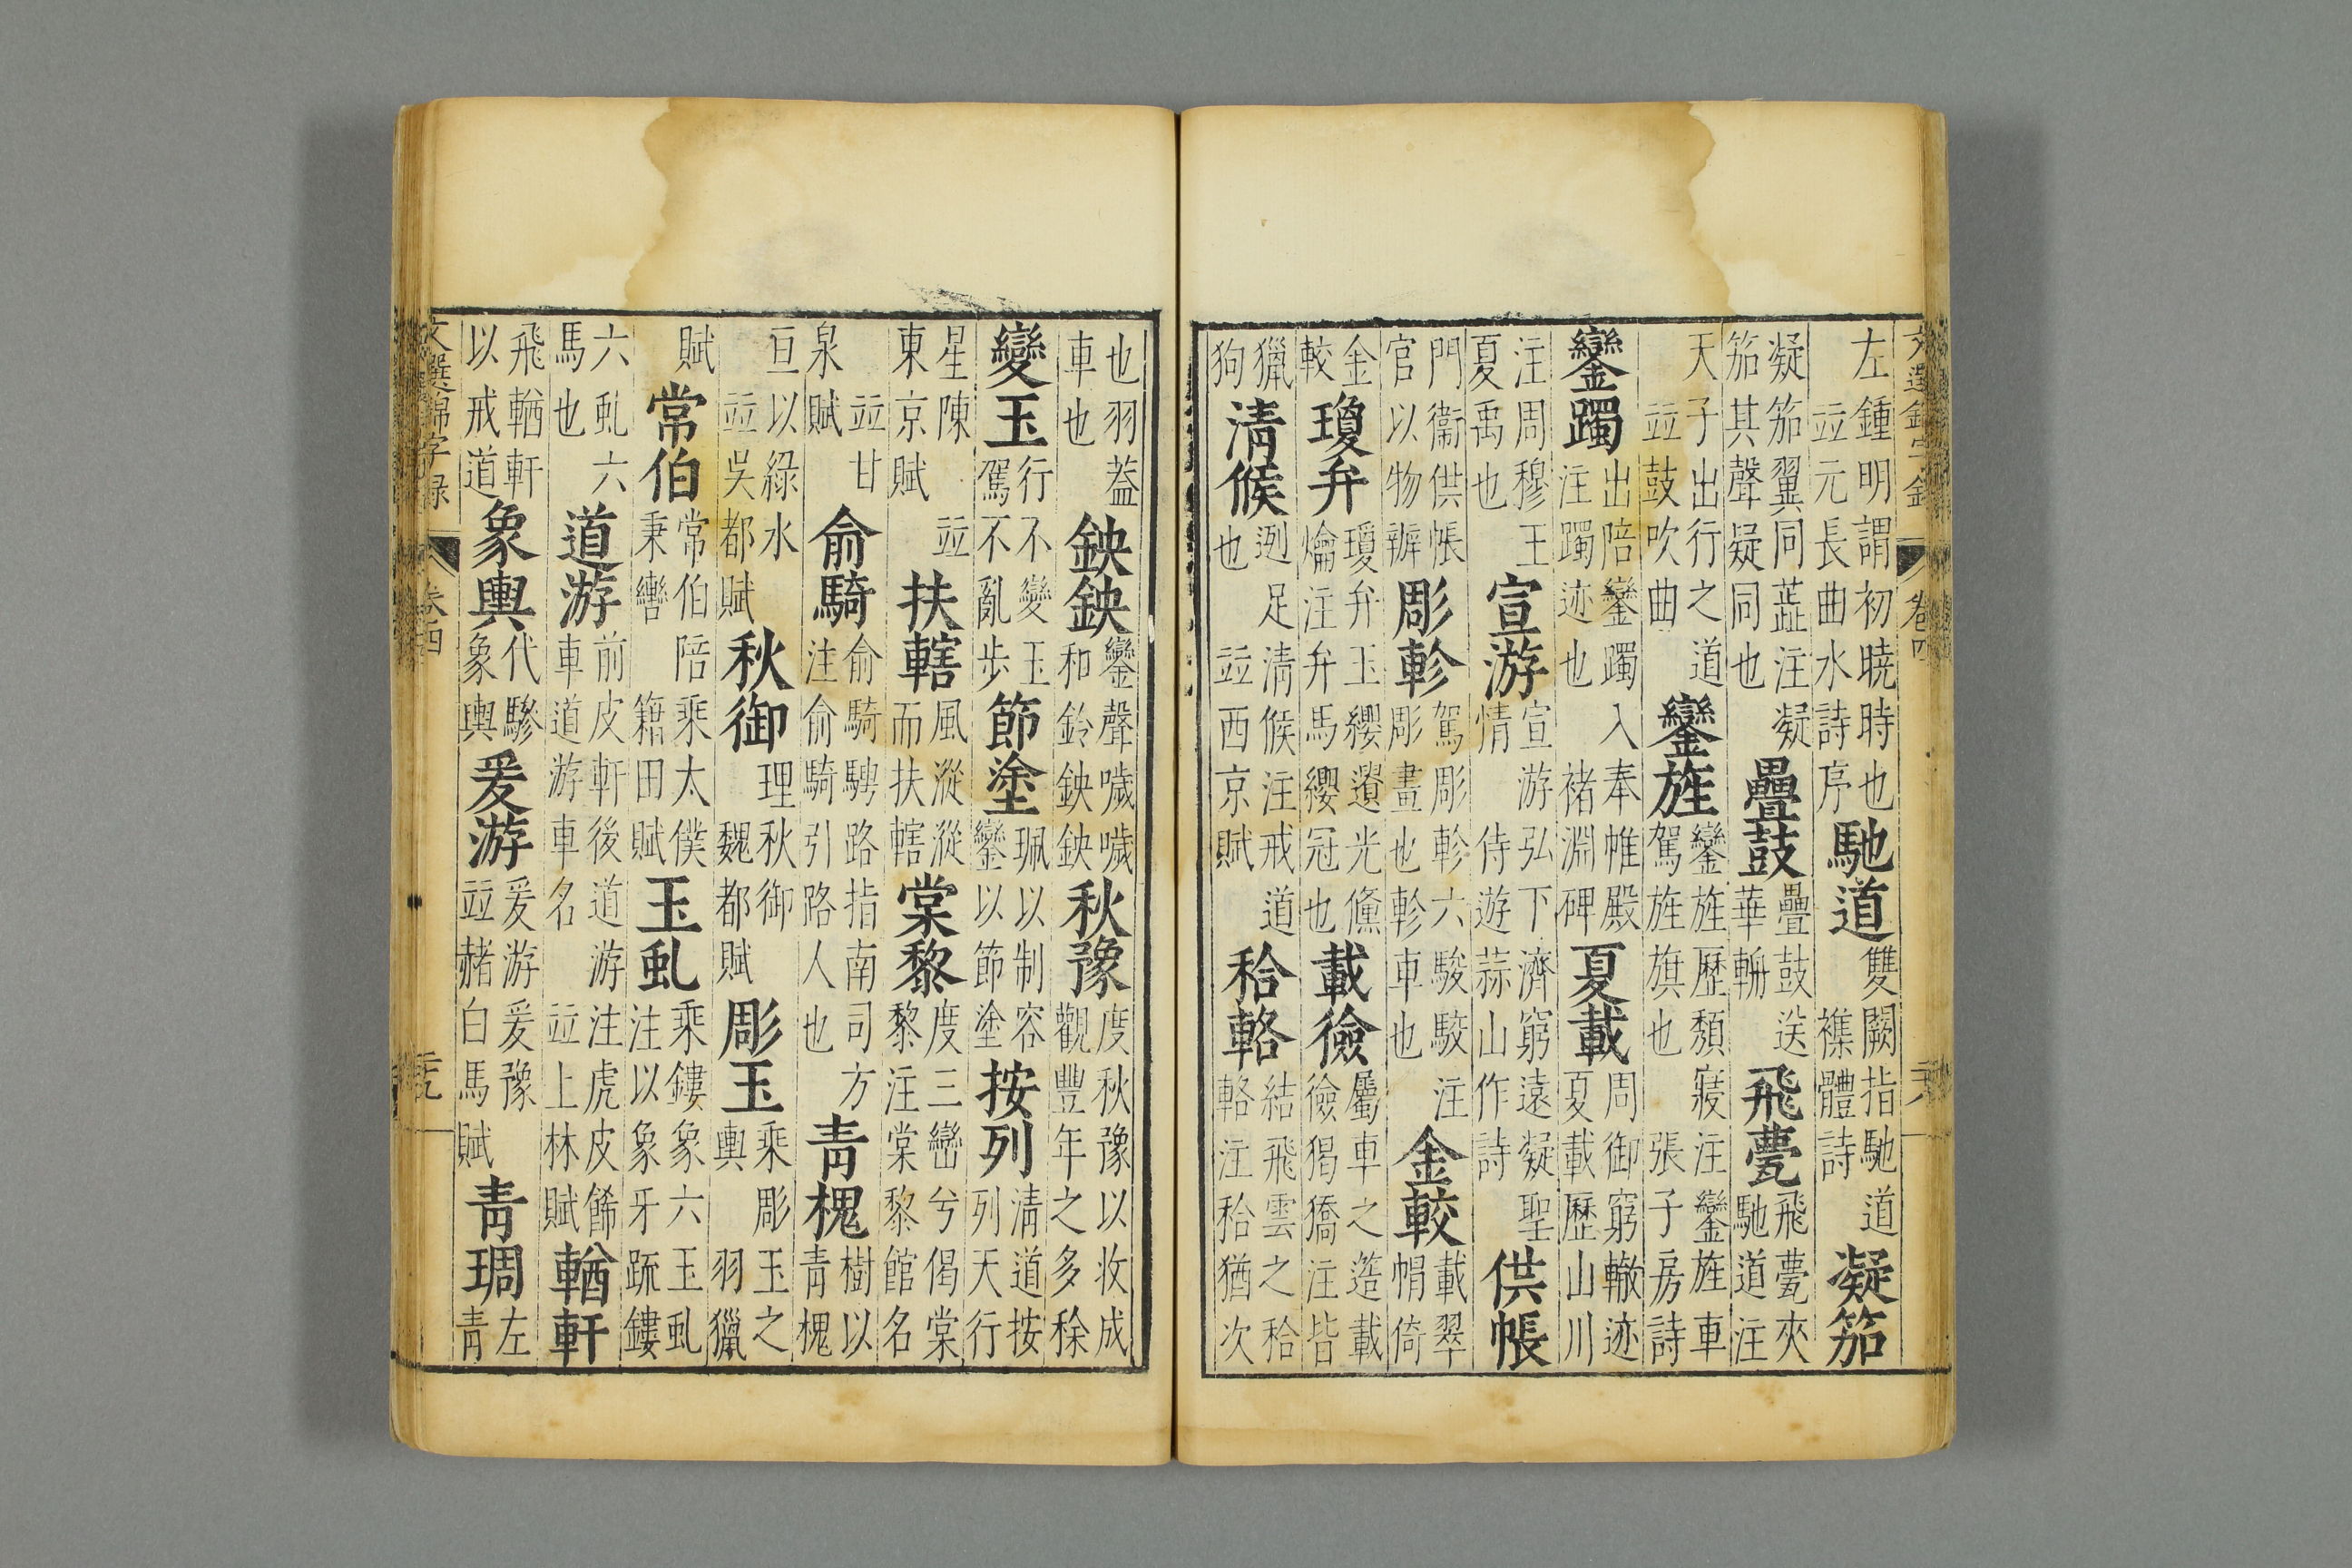 文選錦字錄 卷四
左鍾明謂初曉時也並元長曲水詩序馳道雙闕指馳道襍體詩凝笳
凝笳翼同蓋注凝笳其聲凝同也疊鼓疊鼓送華輈飛甍飛甍夾馳道注
天子出行之道並鼓吹曲鑾旌鑾旌歷頹寢注鑾旌車駕旌旗也張子房詩
鑾躅出陪鑾躅入奉帷殿注躅迹也褚淵碑夏載周御窮轍迹夏載歷山川
注周穆王夏禹也宣游宣游弘下濟窮遠凝聖情侍遊蒜山作詩供帳
門衞供帳官以物辦彫軫駕彫軫六駿駮注彫畫也軫車也金較載翠帽倚
金較瓊弁瓊弁玉纓遺光儵爚注弁馬纓冠也載獫屬車之簉載獫猲獢注皆
獵狗清候迾足清候注戒道也並西京賦秴輅結飛雲之秴輅注秴猶次
也羽葢車也鉠鉠鑾聲噦噦和鈴鉠鉠秋豫度秋豫以收成觀豐年之多稌
變玉行不變玉駕不亂步節塗珮以制容鑾以節塗按列清道按列天行
星陳並東京賦扶轄風漎漎而扶轄棠黎度三巒兮偈棠黎注棠黎館名
並甘泉賦俞騎俞騎騁路指南司方注俞騎引路人也青槐樹以青槐
亘以綠水並吳都賦秋御理秋御魏都賦彫玉乘彫玉之輿羽獵
賦常伯常伯陪乘太僕秉轡籍田賦玉虬乘鏤象六玉虬注以象牙疏鏤
六虬六馬也道游前皮軒後道游注虎皮飾車道游車名並上林賦輶軒
飛輶軒以戒道象輿代驂象輿爰游爰游爰豫並赭白馬賦青琱左青
文選錦字錄 卷四